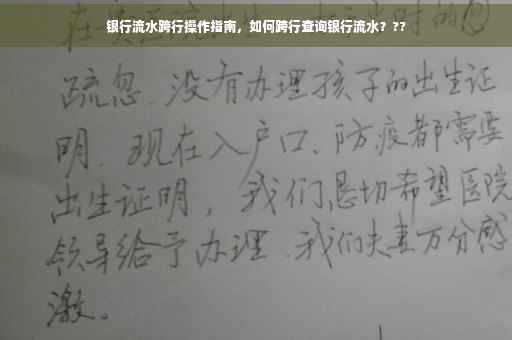 银行流水跨行操作指南，如何跨行查询银行流水？??
疏忽.没有办理孩子的出生证
明.现在入户口、防疫都需要
出生证明，我们恳切希望医院
领导给予办理.我们夫妻万分感
激。